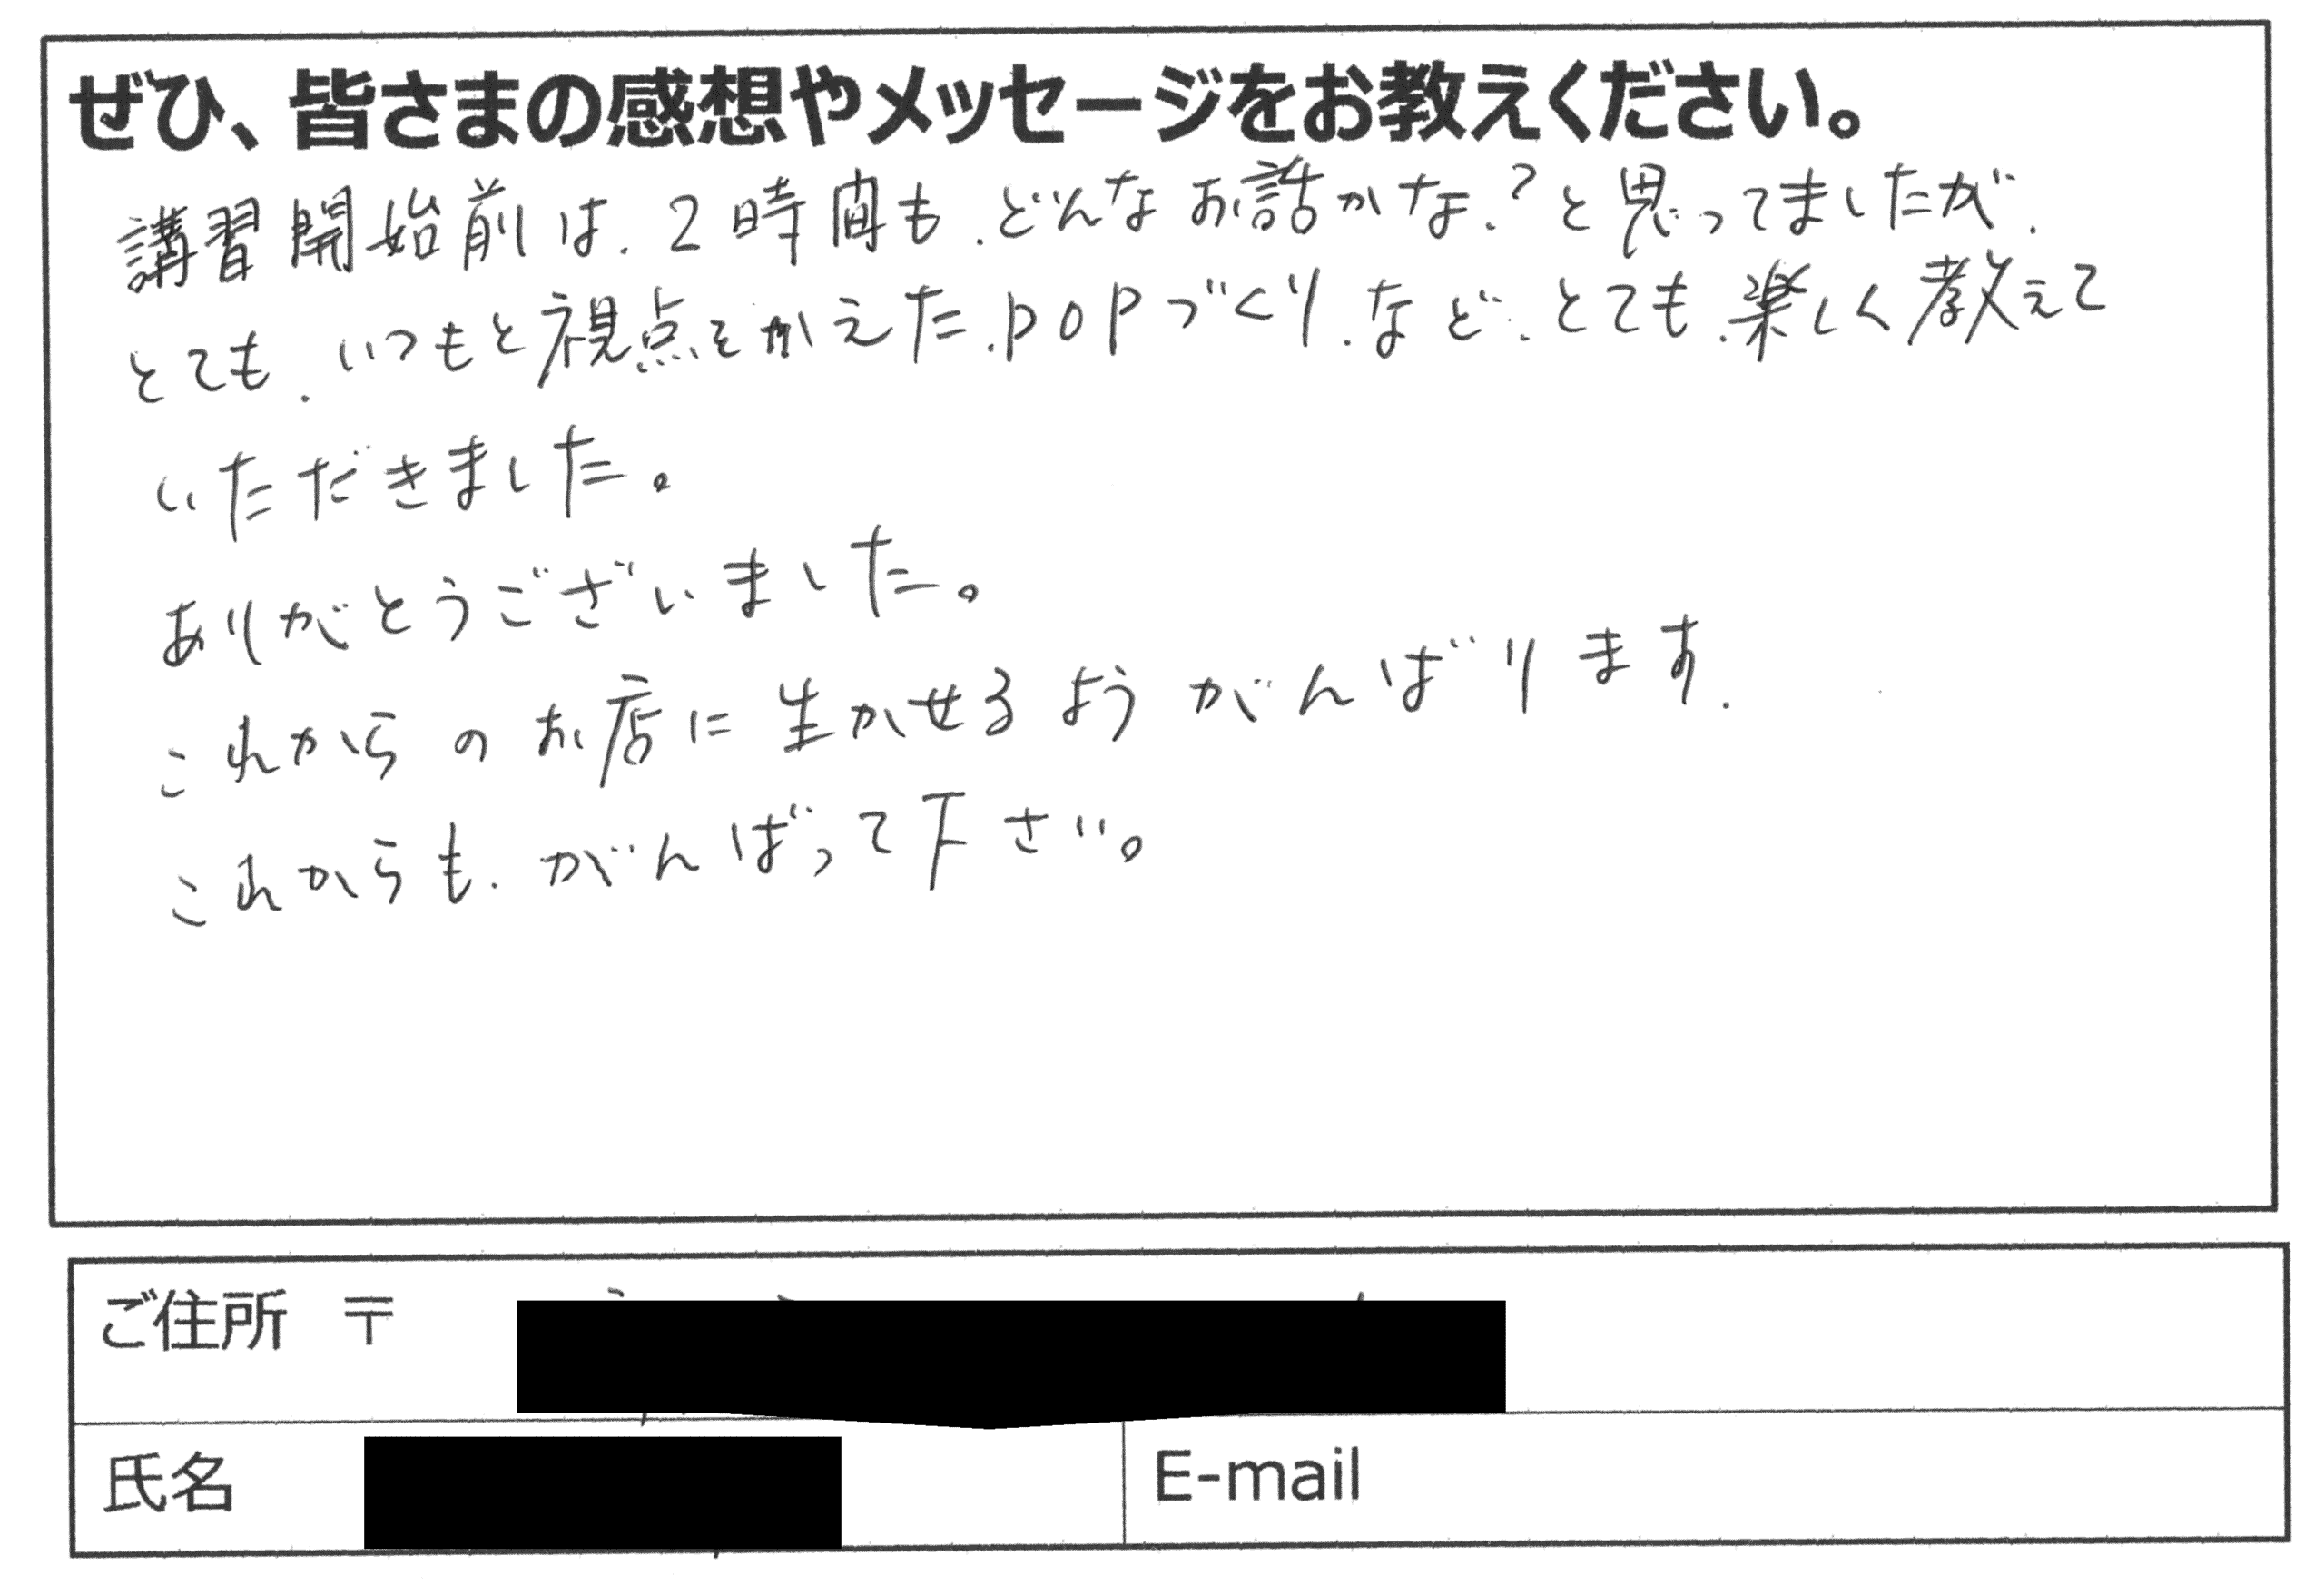 ぜひ、皆さまの感想やメッセージをお教えください。
講習開始前は、2時間も、どんなお話かな?と思ってましたが、
とても、いつもと視点をかえた、POPづくり、など、とても、楽しく教えて
いただきました。
ありがとうございました。
これからのお店に生かせるようがんばります.
これからも、がんばって下さい。
ご住所 〒
氏名
E-mail